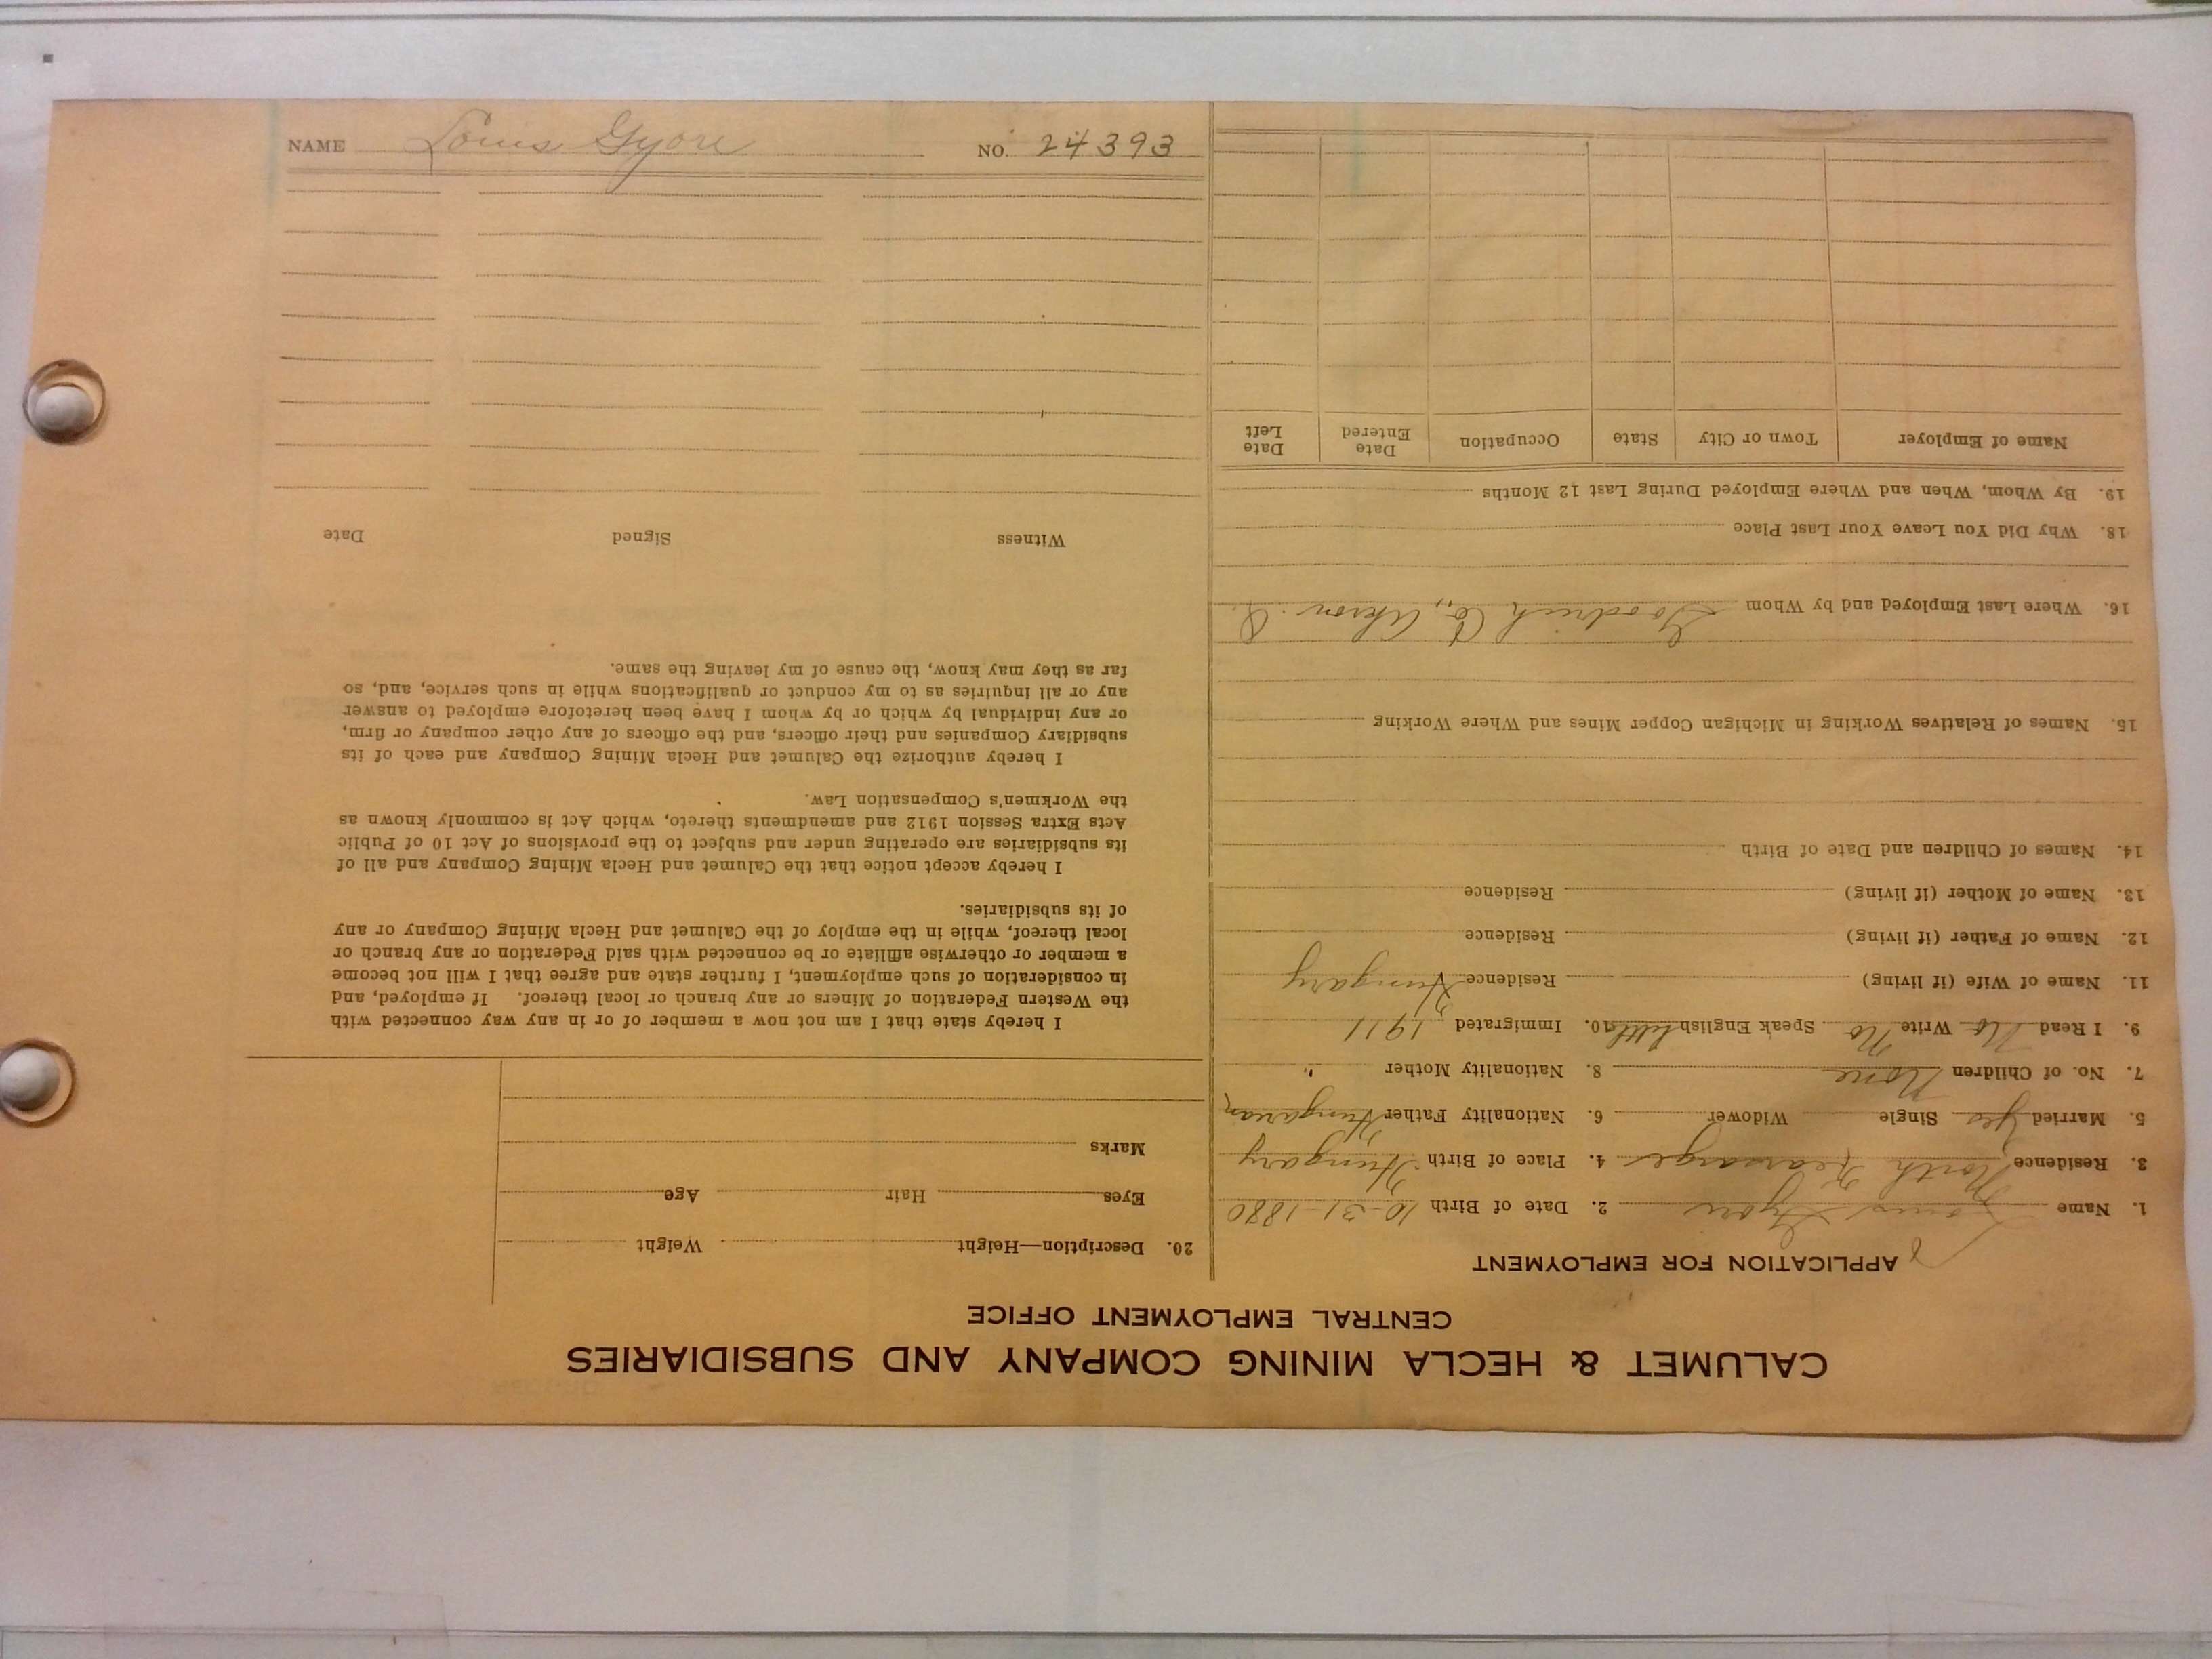 NAME Louis Gyore NO. 24393
CALUMET & HECLA MINING COMPANY AND SUBSIDIARIES
CENTRAL EMPLOYMENT OFFICE
APPLICATION FOR EMPLOYMENT
1. Name Louis Gyore 2. Date of Birth 10-31-1880
3. Residence North Kearsarge 4. Place of Birth Hungary
5. Married Yes Single Widower 6. Nationality Father Hungarian
7. No. of Children None 8. Nationality Mother "
9. I Read No Write No Speak English little 10. Immigrated 1911
11. Name of Wife (if living) Residence Hungary
12. Name of Father (if living) Residence
13. Name of Mother (if living) Residence
14. Names of Children and Date of Birth
15. Names of Relatives Working in Michigan Copper Mines and Where Working
16. Where Last Employed and by Whom Goodrich Co., Akron O.
18. Why Did You Leave Your Last Place
19. By Whom, When and Where Employed During Last 12 Months
Name of Employer Town or City State Occupation Date Entered Date Left
20. Description—Height Weight
Eyes Hair Age
Marks
I hereby state that I am not now a member of or in any way connected with
the Western Federation of Miners or any branch or local thereof. If employed, and
in consideration of such employment, I further state and agree that I will not become
a member or otherwise affiliate or be connected with said Federation or any branch or
local thereof, while in the employ of the Calumet and Hecla Mining Company or any
of its subsidiaries.
I hereby accept notice that the Calumet and Hecla Mining Company and all of
its subsidiaries are operating under and subject to the provisions of Act 10 of Public
Acts Extra Session 1912 and amendments thereto, which Act is commonly known as
the Workmen's Compensation Law.
I hereby authorize the Calumet and Hecla Mining Company and each of its
subsidiary Companies and their officers, and the officers of any other company or firm,
or any individual by which or by whom I have been heretofore employed to answer
any or all inquiries as to my conduct or qualifications while in such service, and, so
far as they may know, the cause of my leaving the same.
Witness Signed Date